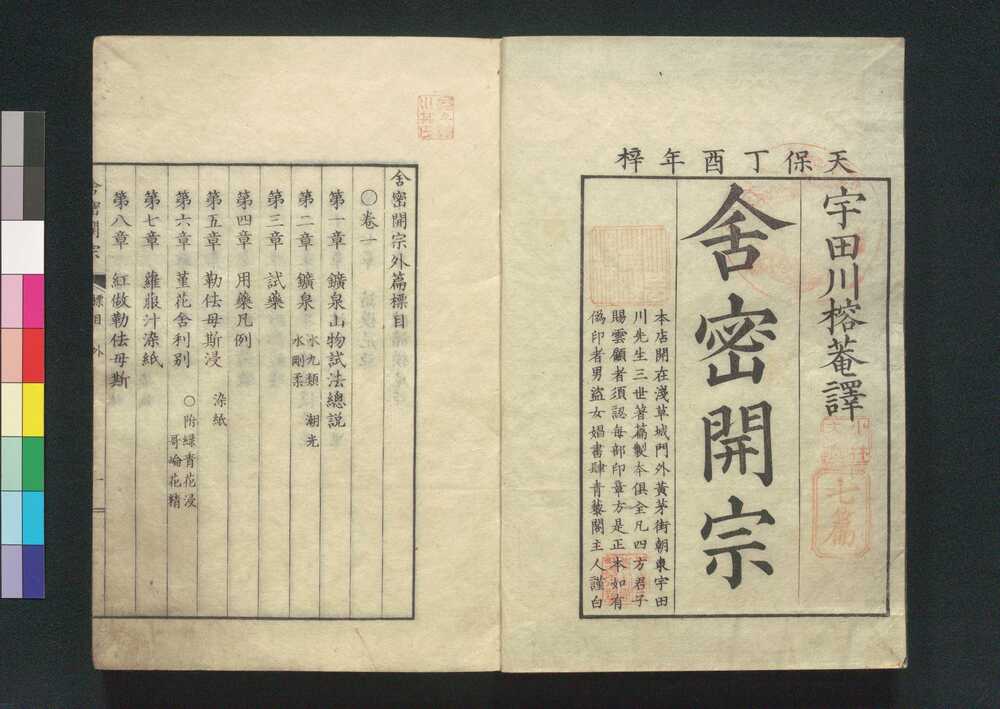 天保丁酉年梓
宇田川榕菴譯
舍密開宗
本店開在淺草城門外黃茅街朝東宇田
川先生三世著篇製本俱全凡四方君子
賜雲顧者須認每部印章方是正本如有
偽印者男盜女娼書肆青藜閣主人謹白
七篇
舍密開宗外篇標目
○卷一
第一章 鑛泉山物試法總說
第二章 鑛泉 水九類 潮光
水剛柔
第三章 試藥
第四章 用藥凡例
第五章 勒佉母斯浸 染紙
第六章 菫花舍利別 ○附綠青花浸
哥崘花精
第七章 蘿菔汁染紙
第八章 紅傚勒佉母斯
舍密開宗
標目 外
一